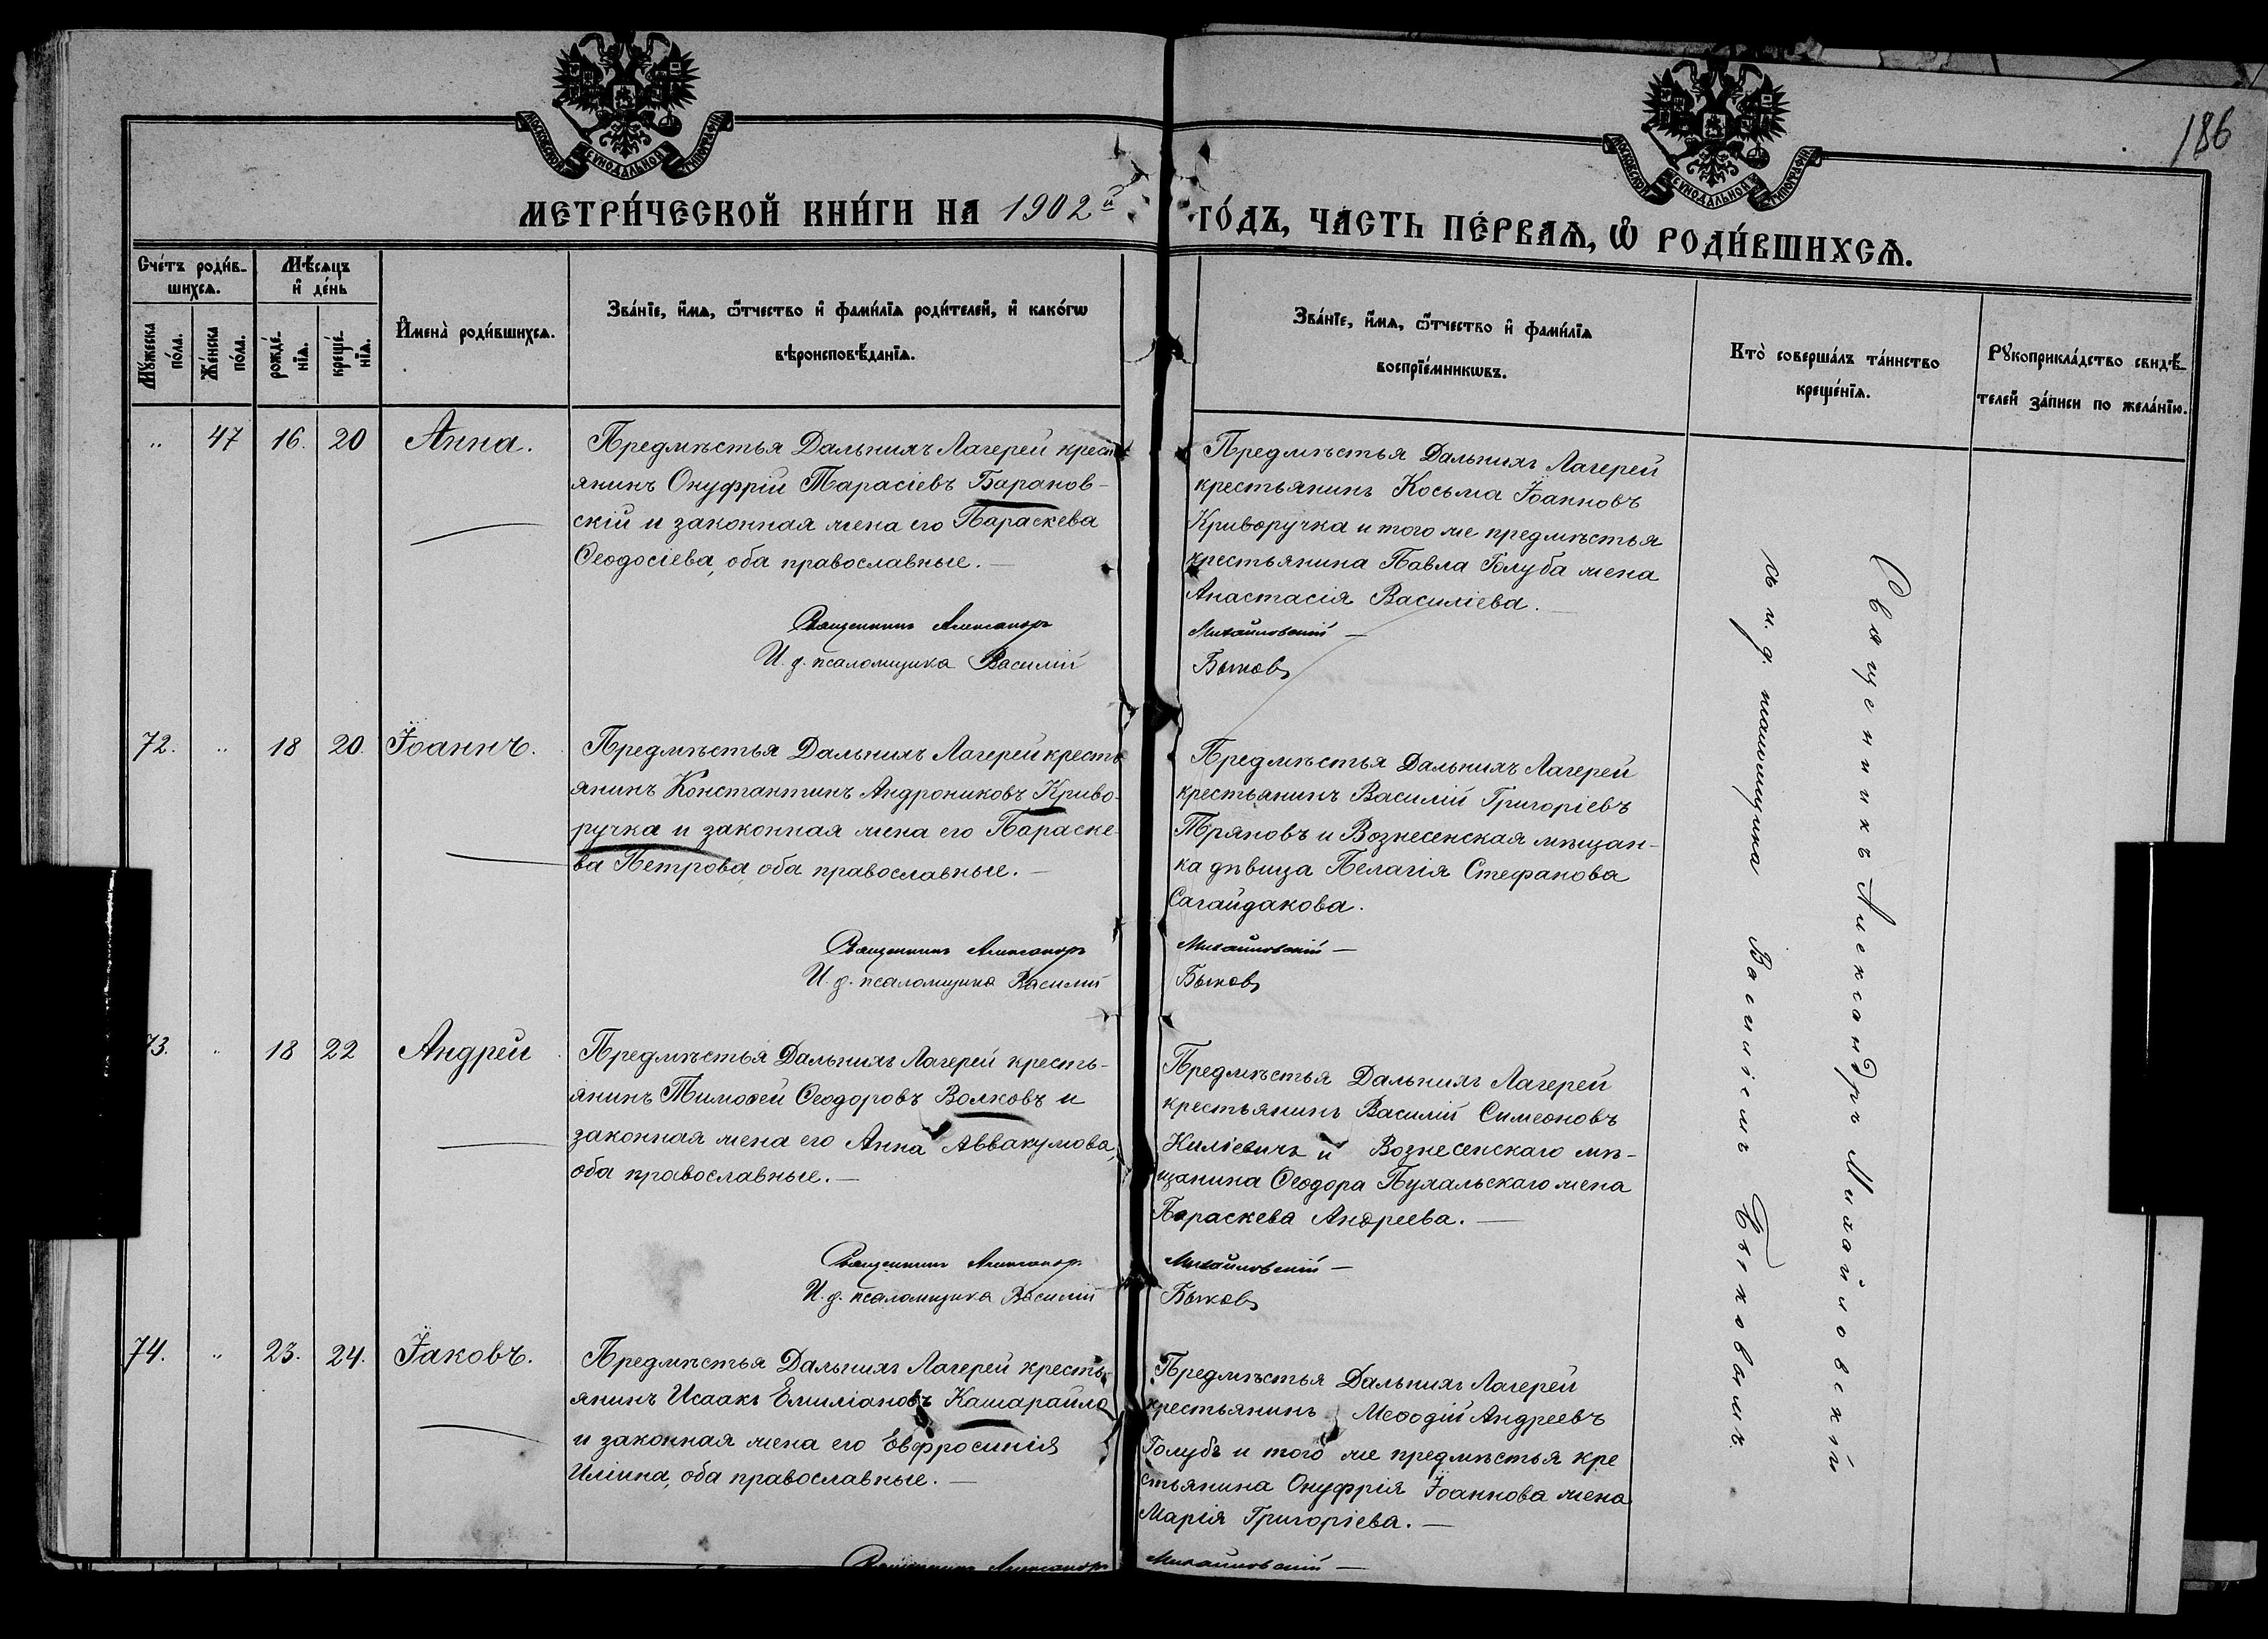 186
МОСКОВСКОЙ СѴНОДАЛЬНОЙ ТИПОГРАФІИ
МОСКОВСКОЙ СѴНОДАЛЬНОЙ ТИПОГРАФІИ
МЕТРИ́ЧЕСКОЙ КНИ́ГИ НА 1902й ГО́ДЪ, ЧАСТЬ ПЕ́РВАѦ, Ѡ҆ РОДИ́ВШИХСѦ.
Сче́тъ роди́в-
шихсѧ.
Мꙋ́жеска
по́ла.
Же́нска
по́ла.
Мѣ́сѧцъ
и҆ де́нь
рожде́-
нїѧ.
креще́-
нїѧ.
И҆мена̀ роди́вшихсѧ.
Зва́нїе, и҆́мѧ, ѻ҆́тчество и҆ фами́лїѧ роди́телей, и҆ како́гѡ
вѣроисповѣ́данїѧ.
Зва́нїе, и҆́мѧ, ѻ҆́тчество и҆ фами́лїѧ
воспрїе́мникѡвъ.
Кто̀ соверша́лъ та́инство
креще́нїѧ.
Рꙋкоприкла́дство свидѣ́-
телей за́писи по жела́нїю.
„ 47 16. 20 Анна.
Предмѣстья Дальнихъ Лагерей крест
янинъ Онуфрій Тарасіевъ Баранов-
скій и законная жена его Параскева
Ѳеодосіева, оба православные. —
Священникъ Александръ
И. д. псаломщика Василій
Предмѣстья Дальнихъ Лагерей
крестьянинъ Косьма Іоанновъ
Криворучка и того же предмѣстья
крестьянина Павла Голуба жена
Анастасія Василіева. —
Михайловскій —
Быковъ
72. „ 18 20. Іоаннъ.
Предмѣстья Дальнихъ Лагерей кресть
янинъ Константинъ Андрониковъ Криво-
ручка и законная жена его Параске-
ва Петрова, оба православные. —
Священникъ Александръ
И. д. псаломщика Василій
Предмѣстья Дальнихъ Лагерей
крестьянинъ Василій Григоріевъ
Тряновъ и Вознесенская мѣщан-
ка дѣвица Пелагія Стефанова
Сагайдакова.
Михайловскій —
Быковъ
73. „ 18 22 Андрей
Предмѣстья Дальнихъ Лагерей кресть-
янинъ Тимоѳей Ѳеодоровъ Волковъ и
законная жена его Анна Аввакумова,
оба православные. —
Священникъ Александръ
И. д. псаломщика Василій
Предмѣстья Дальнихъ Лагерей
крестьянинъ Василій Симеоновъ
Киліевичъ и Вознесенскаго мѣ-
щанина Ѳеодора Пухальскаго жена
Параскева Андреева. —
Михайловскій —
Быковъ
74. „ 23. 24. Іаковъ.
Предмѣстья Дальнихъ Лагерей кресть-
янинъ Исаакъ Емиліановъ Кашарайло
и законная жена его Евфросинія
Иліина, оба православные. —
Священникъ Александръ
Предмѣстья Дальнихъ Лагерей
крестьянинъ Меѳодій Андреевъ
Голубъ и того же предмѣстья кре
стьянина Онуфрія Іоаннова жена
Марія Григоріева. —
Михайловскій —
Священникъ Александръ Михайловскій
съ и. д. псаломщика Василіемъ Быковымъ.